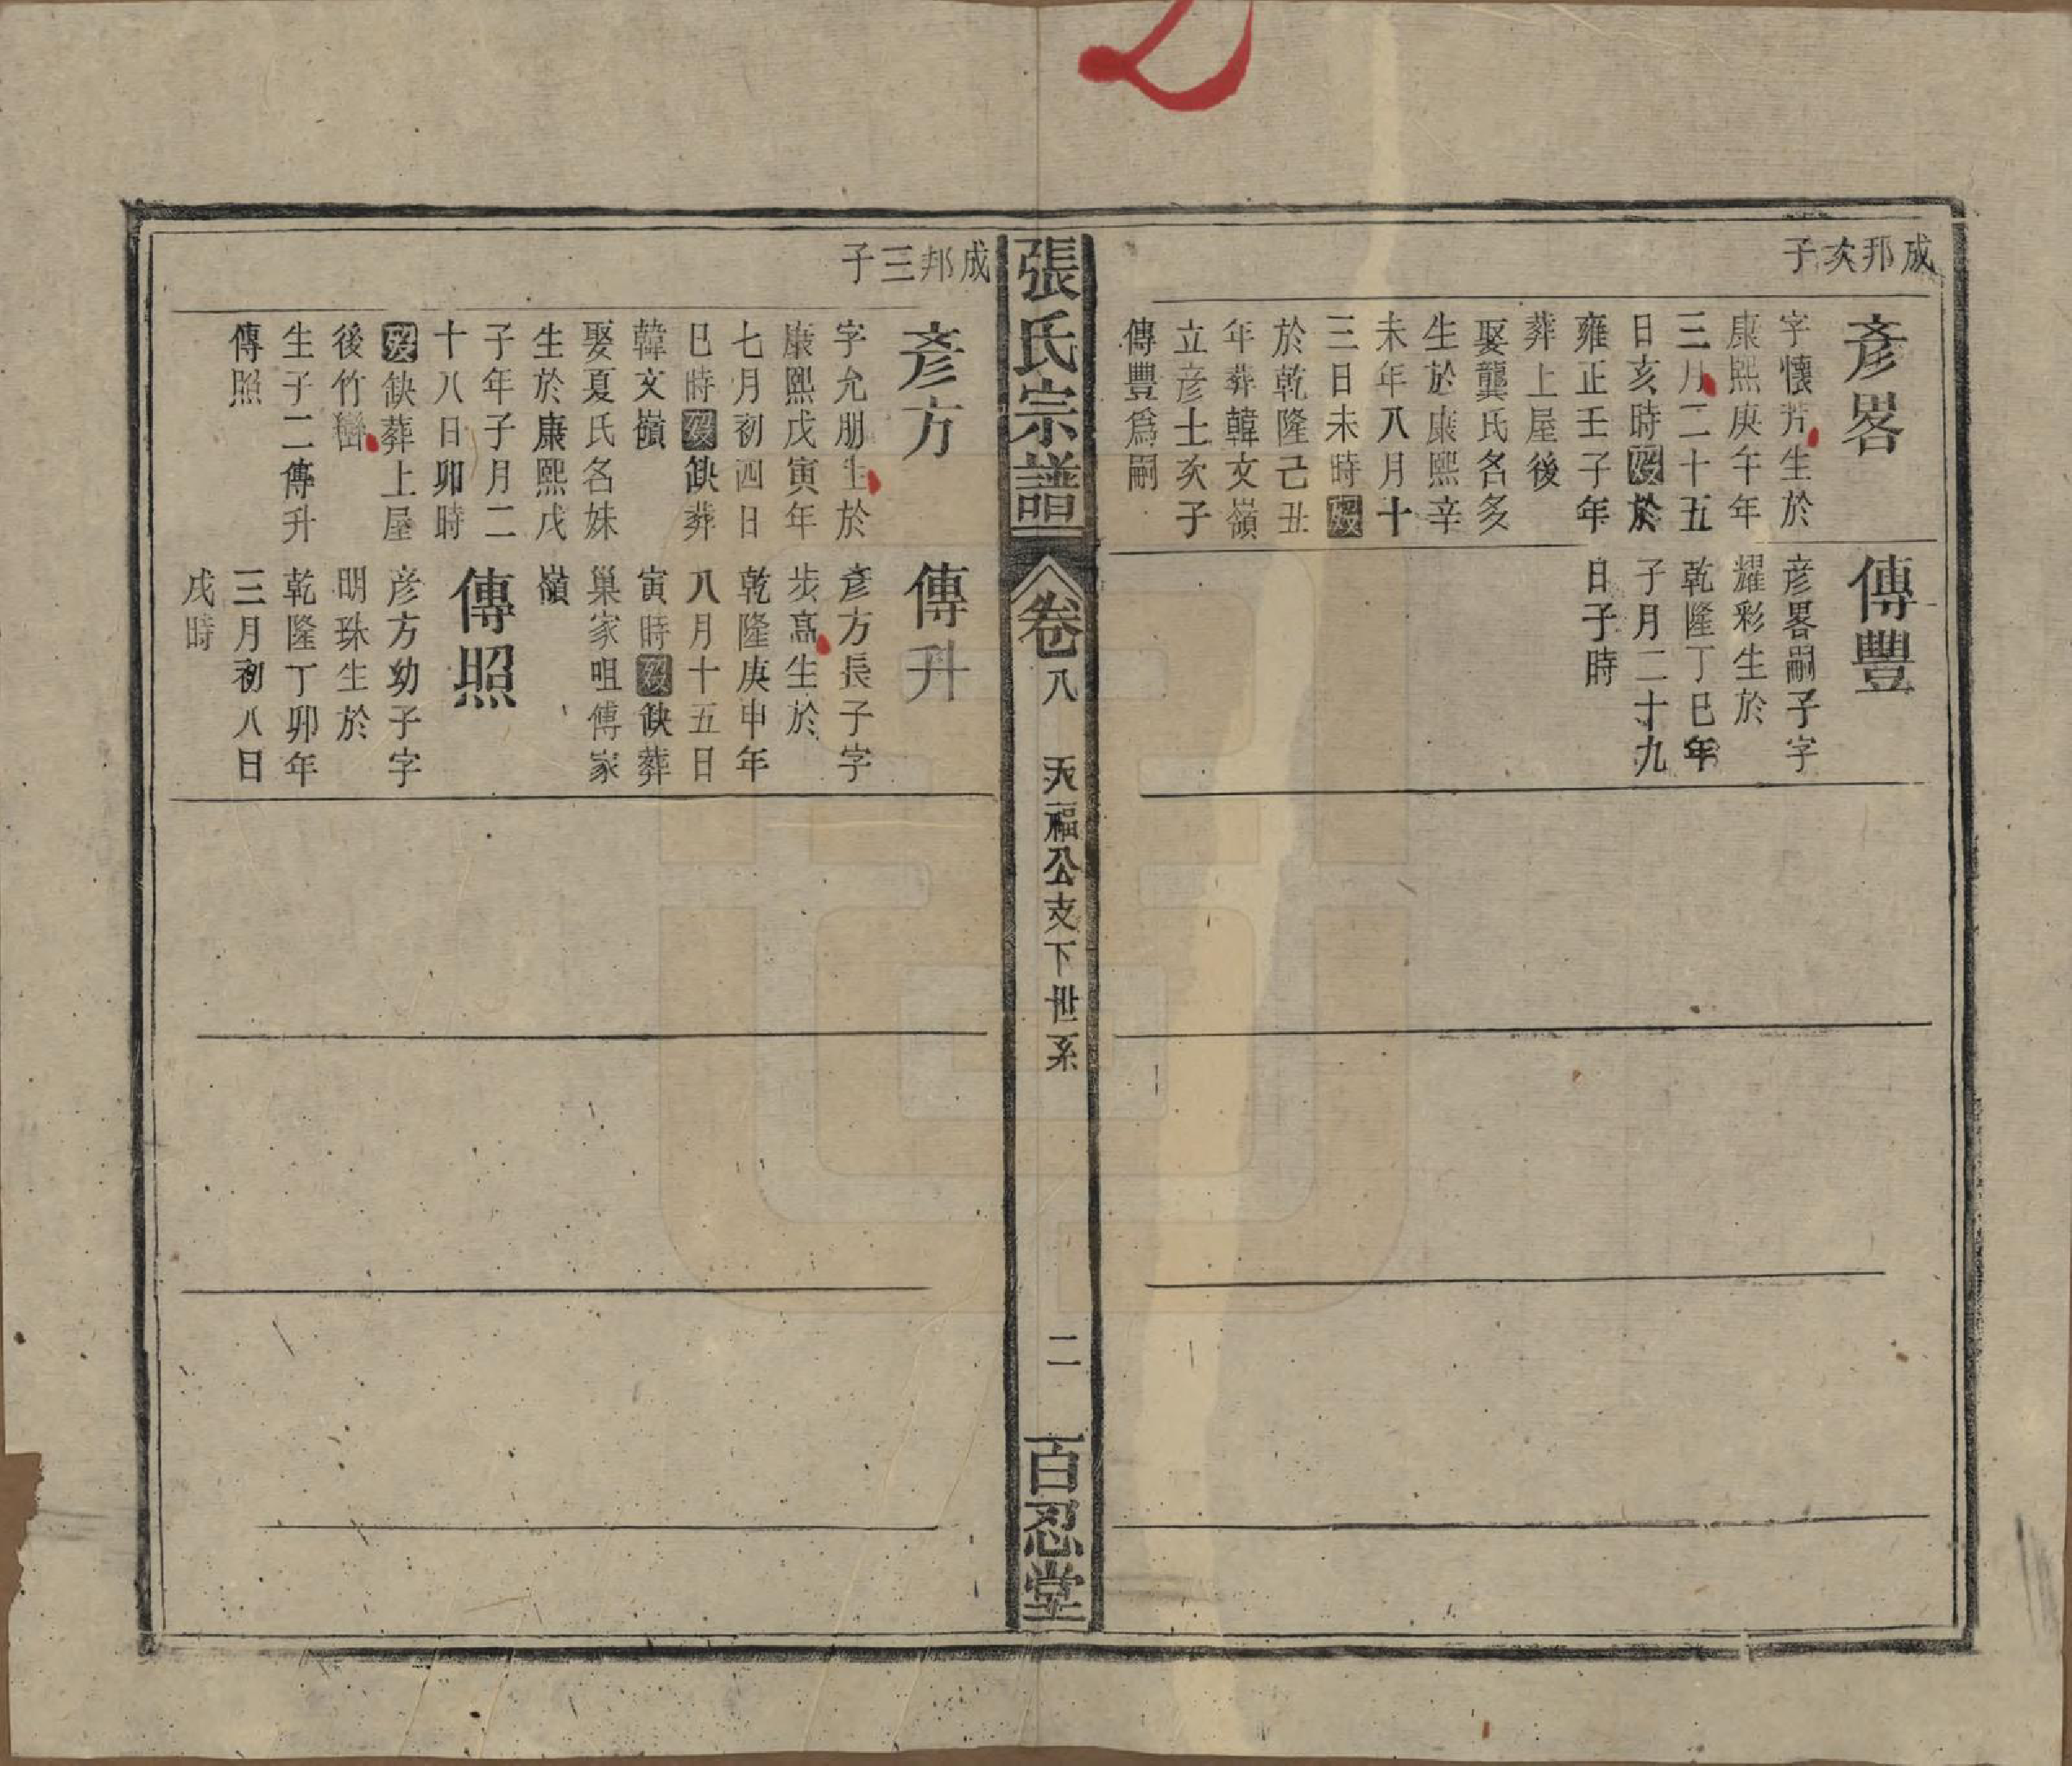 成邦次子
彥畧
字懷芳生於
康熙庚午年
三月二十五
日亥時歿於
雍正壬子年
葬上屋後
娶龔氏名多
生於康熙辛
未年八月十
三日未時歿
於乾隆己丑
年葬韓文嶺
立彥士次子
傳豐爲嗣
傳豐
彥畧嗣子字
耀彩生於
乾隆丁巳年
子月二十九
日子時
張氏宗譜
卷八
天福公支下世系
二
百忍堂
成邦三子
彥方
字允朋生於
康熙戊寅年
七月初四日
巳時歿缺葬
韓文嶺
娶夏氏名妹
生於康熙戊
子年子月二
十八日卯時
歿缺葬上屋
後竹巒
生子二傳升
傳照
傳升
彥方長子字
步高生於
乾隆庚申年
八月十五日
寅時歿缺葬
巢家咀傅家
嶺
傳照
彥方幼子字
明珠生於
乾隆丁卯年
三月初八日
戌時